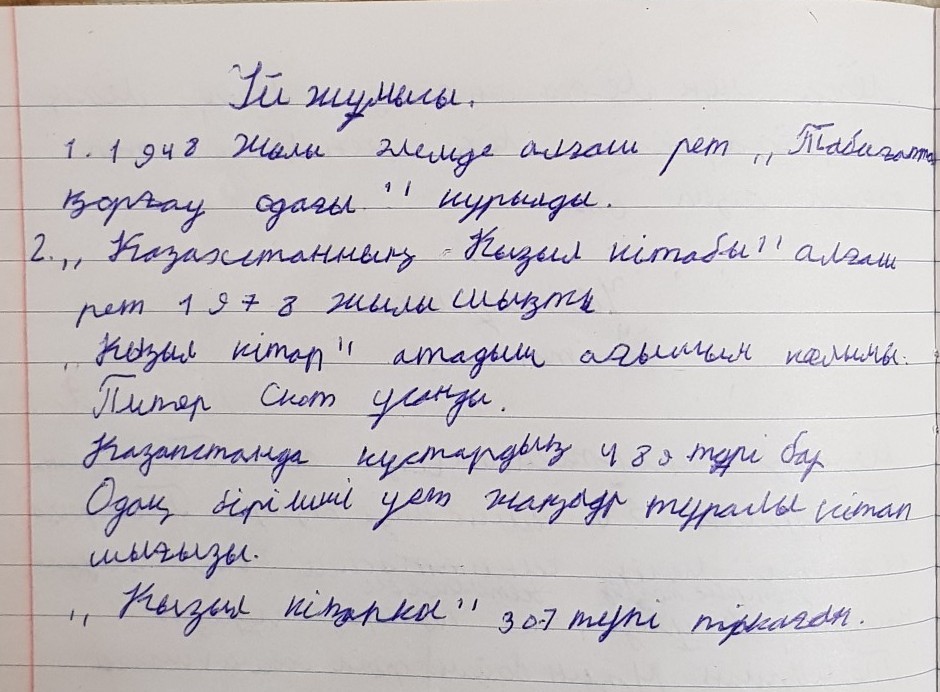 Үй жұмысы.
1. 1948 жылы әлемде алғаш рет ,, Табиғатты
қорғау одағы " құрылды.
2. ,, Казахстанның Кызыл кітабы" алғаш
рет 1978 жылы шықты
,, Кызыл кітап" атадың ағылшын
Питер Скот ұсанды.
Казапстанда құстардың 489 түрі бар
Одақ бірінші ует жаңадр туралы кітап
шығызы.
,, Кызыл кітапка" 307 түпі тіркаған.